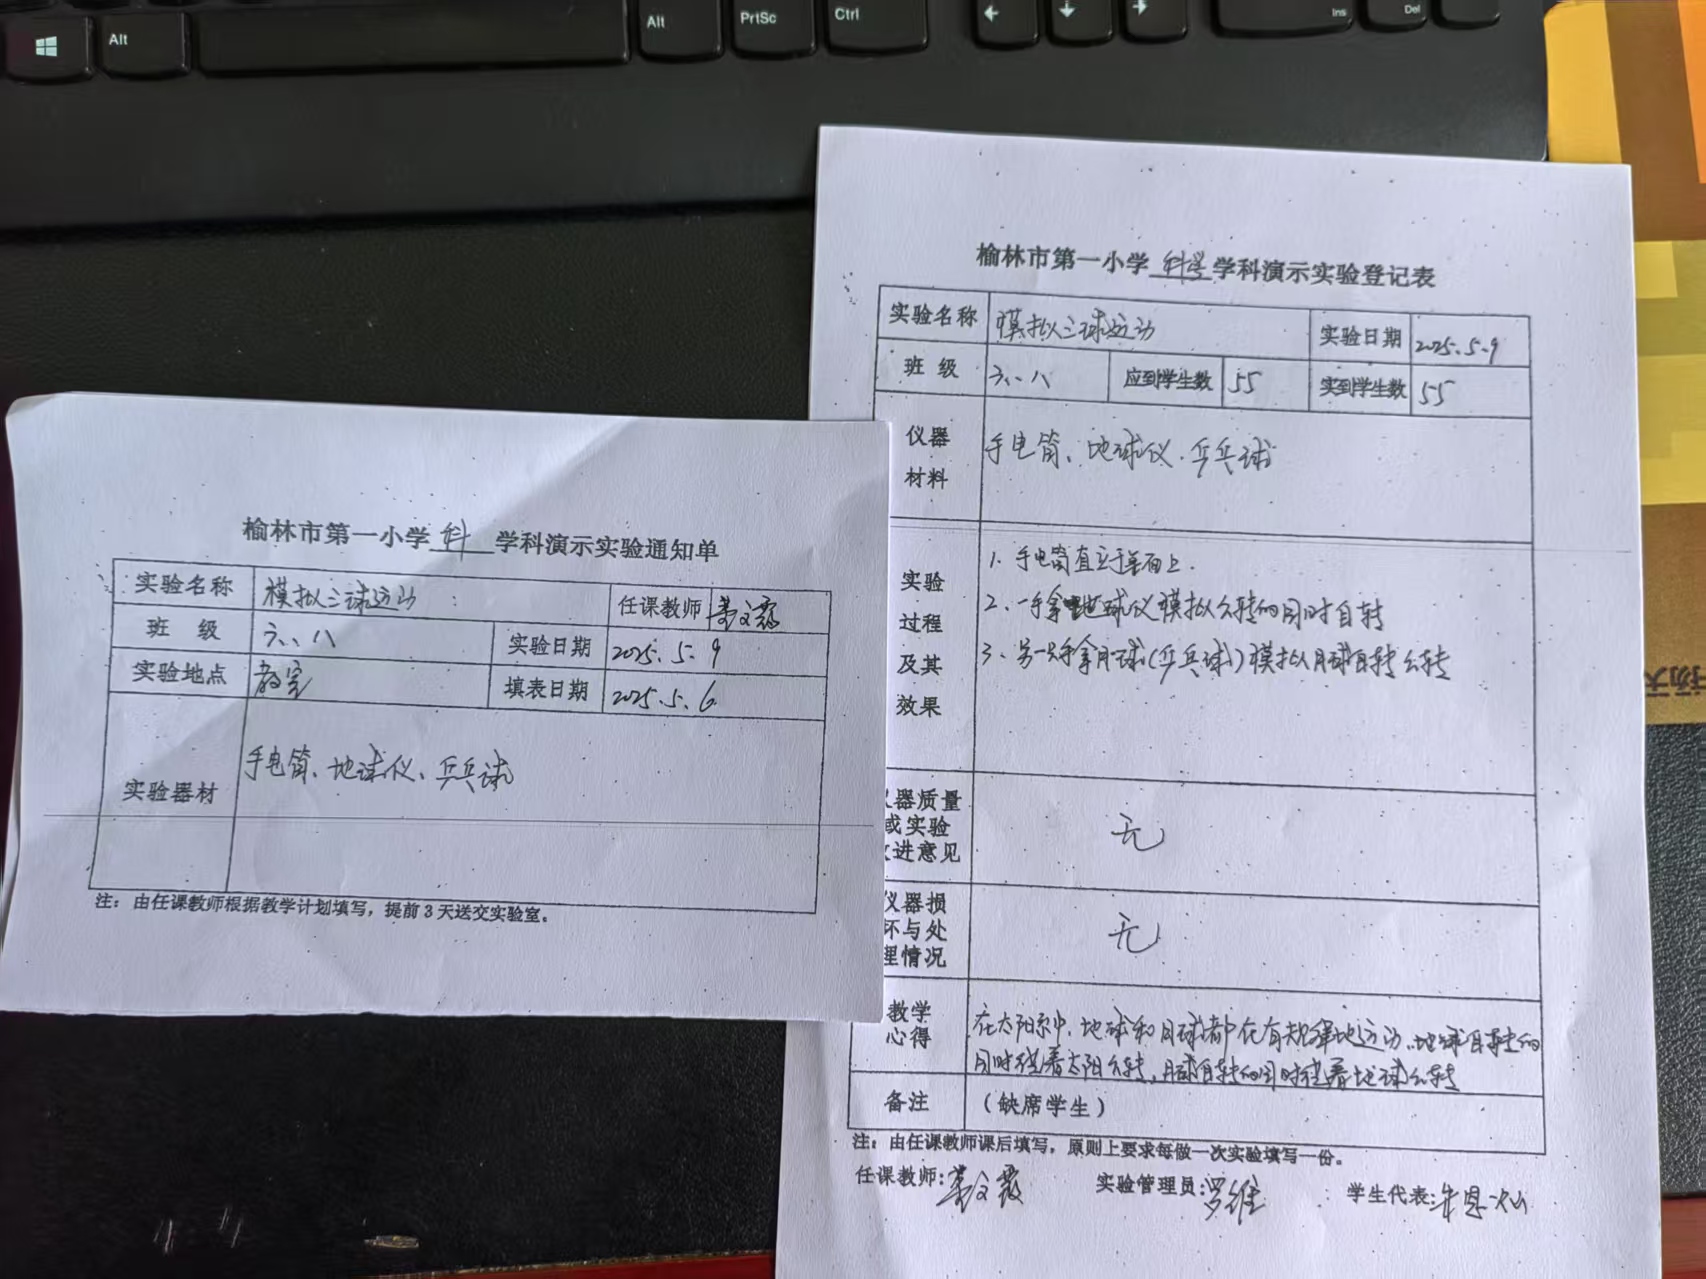 Alt
Alt
PrtSc
Ctrl
Ins
Del
榆林市第一小学 科 学科演示实验通知单
实验名称 模拟三球运动 任课教师
班级 六、八 实验日期 2025.5.9
实验地点 教室 填表日期 2025.5.6
实验器材 手电筒、地球仪、乒乓球
注：由任课教师根据教学计划填写，提前3天送交实验室。
榆林市第一小学 科学 学科演示实验登记表
实验名称 模拟三球运动 实验日期 2025.5.9
班级 六、八 应到学生数 55 实到学生数 55
仪器材料 手电筒、地球仪、乒乓球
实验过程及其效果
1、手电筒直立于桌面上.
2、一手拿地球仪模拟公转的同时自转
3、另一只手拿月球(乒乓球)模拟月球自转公转
仪器质量或实验改进意见 无
仪器损坏与处理情况 无
教学心得 在太阳系中，地球和月球都在有规律地运动，地球自转的
同时绕着太阳公转，月球自转的同时绕着地球公转
备注 （缺席学生）
注：由任课教师课后填写，原则上要求每做一次实验填写一份。
任课教师: 实验管理员:罗维 学生代表: